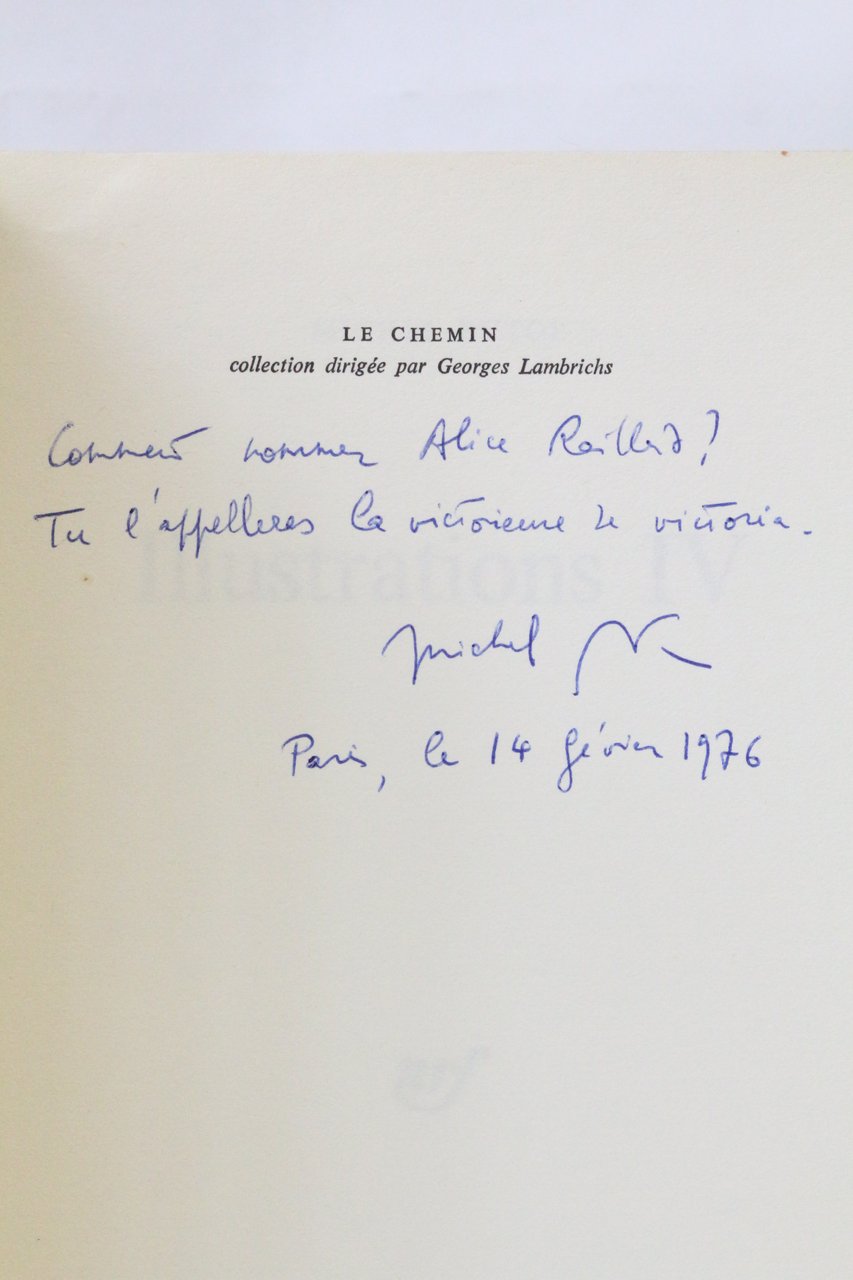 LE CHEMIN
collection dirigée par Georges Lambrichs
Comment nommer Alice Raillard ?
Tu l'appelleras la victorieuse de victoria.
Illustrations IV
michel
Paris, le 14 février 1976
nrf